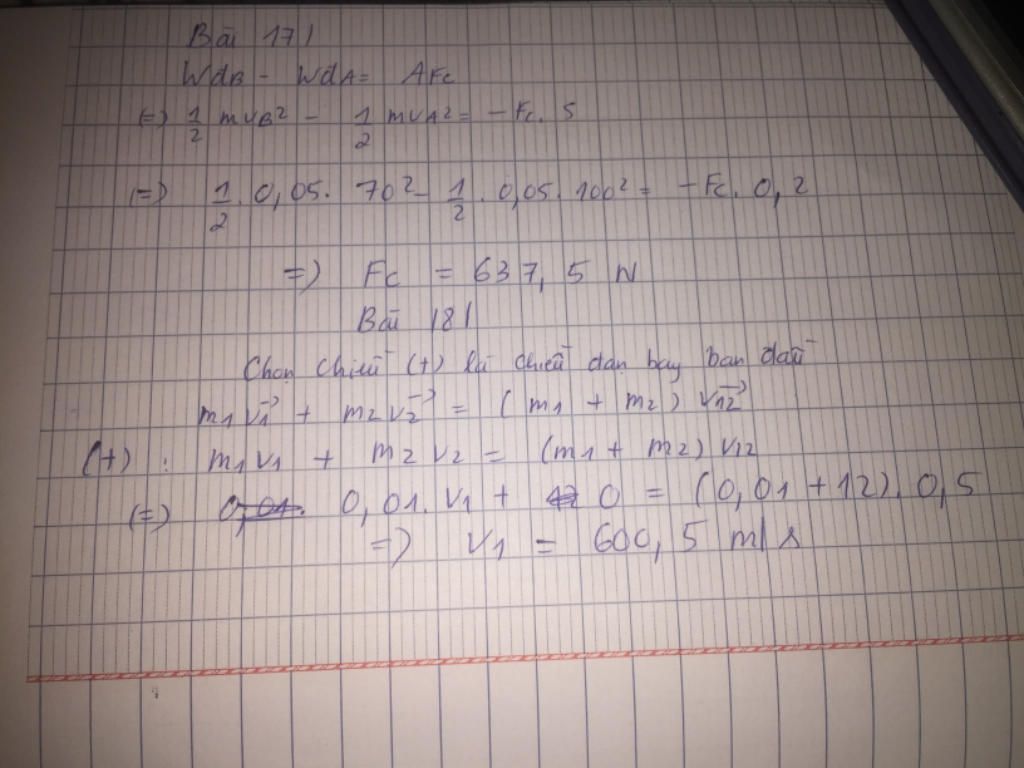 Bài 17/
WđB - WđA = AFc
(=) 1/2 mvB² - 1/2 mvA² = -Fc. S
(=) 1/2. 0,05. 70² - 1/2. 0,05. 100² = -Fc. 0,2
=) Fc = 637,5 N
Bài 18/
Chọn chiều (+) là chiều đạn bay ban đầu
m1 v1→ + m2 v2→ = (m1 + m2) v12→
(+) : m1v1 + m2 v2 = (m1 + m2) v12
(=) 0,01. v1 + 0 = (0,01 + 12). 0,5
=) v1 = 600,5 m/s